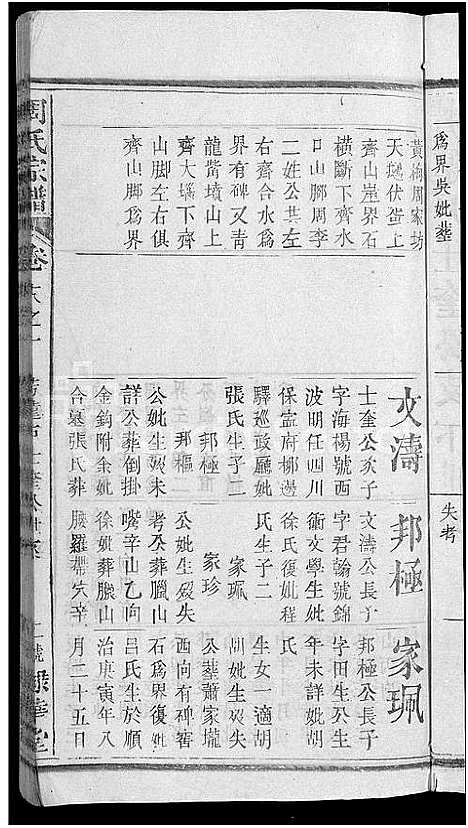 為界吳妣葬
失考
黃梅周家坊
天螺伏蛋上
齊山崖界石
橫斷下齊水
口山腳周李
二姓公共左
右齊合水為
界有碑又青
龍嘴墳山上
齊大㙡下齊
山腳左右俱
齊山腳為界
文濤
士奎公次子
字海楊號西
波明任四川
保寍府柳邊
驛廵政廳妣
張氏生子二
邦極
邦樞
公妣生歿未
詳公葬倒掛
金鈎附余妣
合墓張氏葬
邦極
文濤公長子
字君翰號錦
衞文學生妣
徐氏復妣程
氏生子二
家珮
家珍
公妣生歿失
考公葬臘山
嘴辛山乙向
徐妣葬臘山
腰羅帶穴辛
家珮
邦極公長子
字田生公生
年未詳妣胡
氏
生女一適胡
胡妣生歿失
公葬蕭家壠
西向有碑窨
石爲界復妣
呂氏生於順
治庚寅年八
月二十五日
周氏宗譜
卷